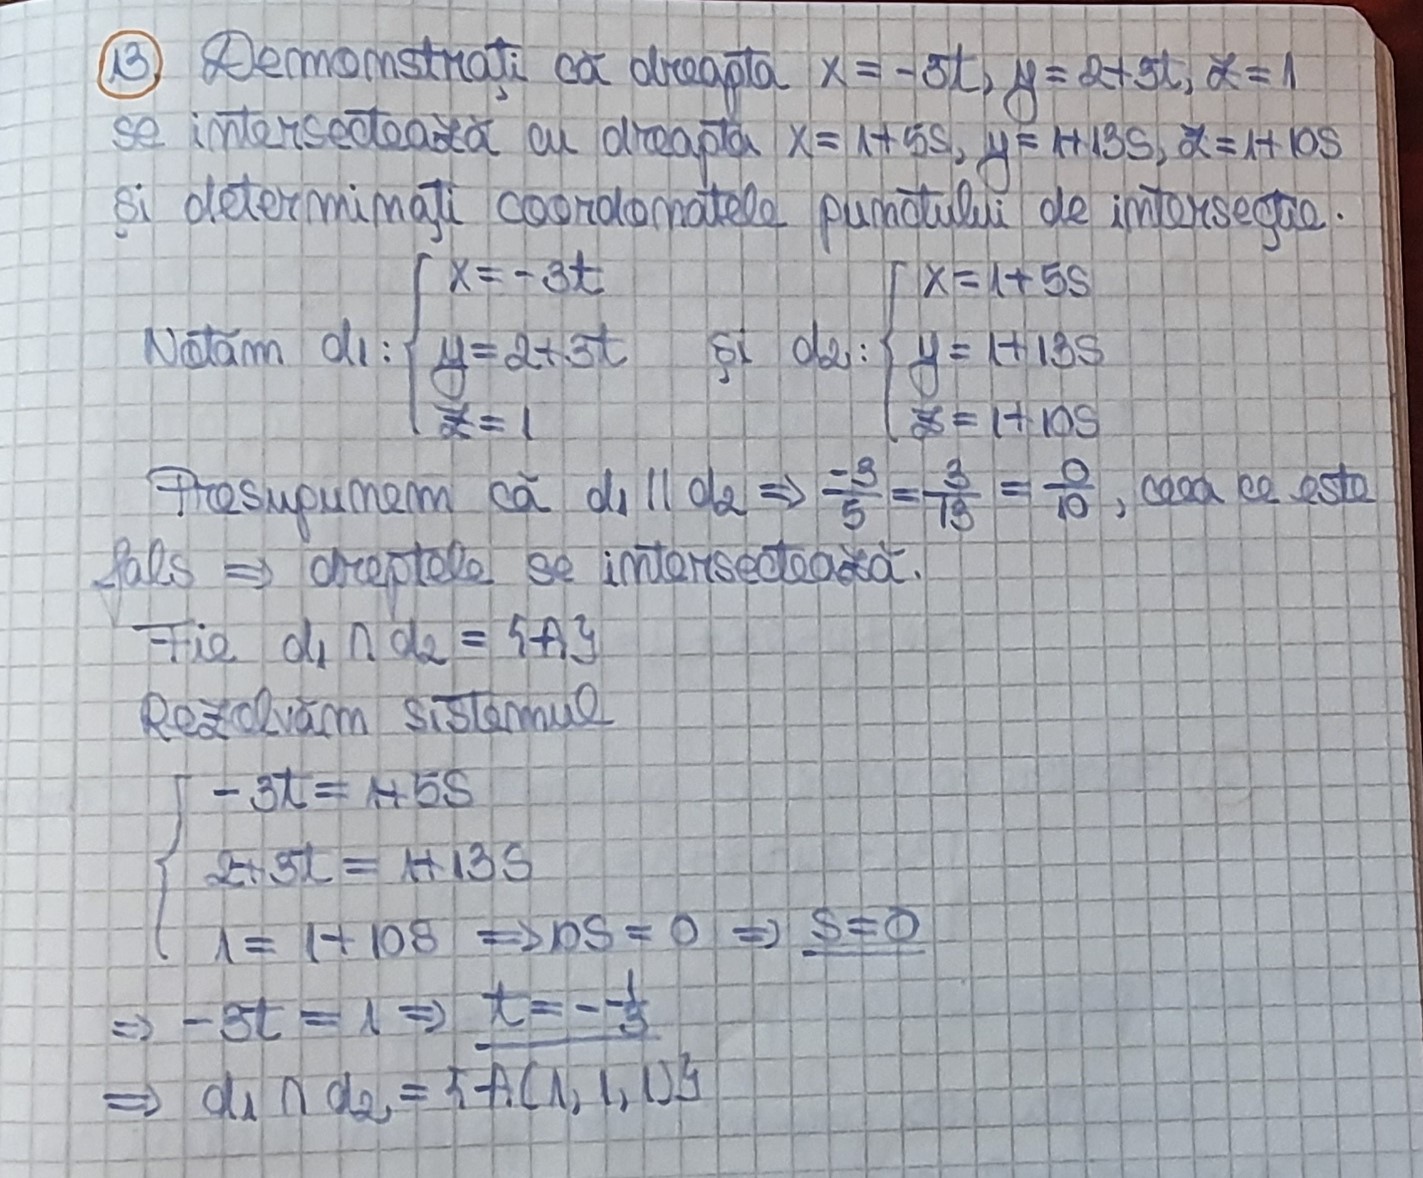 13 Demonstrați că dreapta x = -3t, y = 2+3t, z = 1
se intersectează cu dreapta x = 1+5s, y = 1+13s, z = 1+10s
și determinați coordonatele punctului de intersecție.
Notăm d1: { x = -3t y = 2+3t z = 1 și d2: { x = 1+5s y = 1+13s z = 1+10s
Presupunem că d1 || d2 ⇒ -3/5 = 3/13 = 0/10, ceea ce este
fals ⇒ dreptele se intersectează.
Fie d1 ∩ d2 = {A}
Rezolvăm sistemul
{ -3t = 1+5s
2+3t = 1+13s
1 = 1+10s ⇒ 10s = 0 ⇒ s = 0
⇒ -3t = 1 ⇒ t = -1/3
⇒ d1 ∩ d2 = {A(1, 1, 1)}